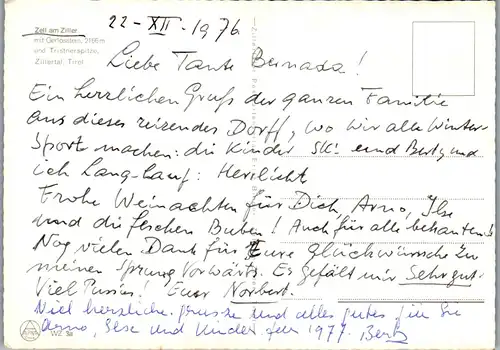 22-XII-1976
Zell am Ziller
mit Gerlosstein, 2166 m
und Tristnerspitze,
Zillertal, Tirol
Liebe Tante Bernada!
Ein herzlichen Gruß der ganzen Familie
aus dieses reizendes Dorff, wo wir alle Winter-
Sport machen: die Kinder Ski und Berty und
ich Lang-Lauf: Herrlich!
Frohe Weinachten für Dich, Arno, Ilse
und die feschen Buben! Auch für alle bekannten
Nog vielen Dank für Eure Glückwünsche zu
meinen Sprung Vorwärts. Es gefält mir Sehr gut.
Viel Pussies! Euer Norbert.
Viel herzliche grusse und alles gutes für Sie
Arno, Ilse und Kinder für 1977. Berty
WZ 58